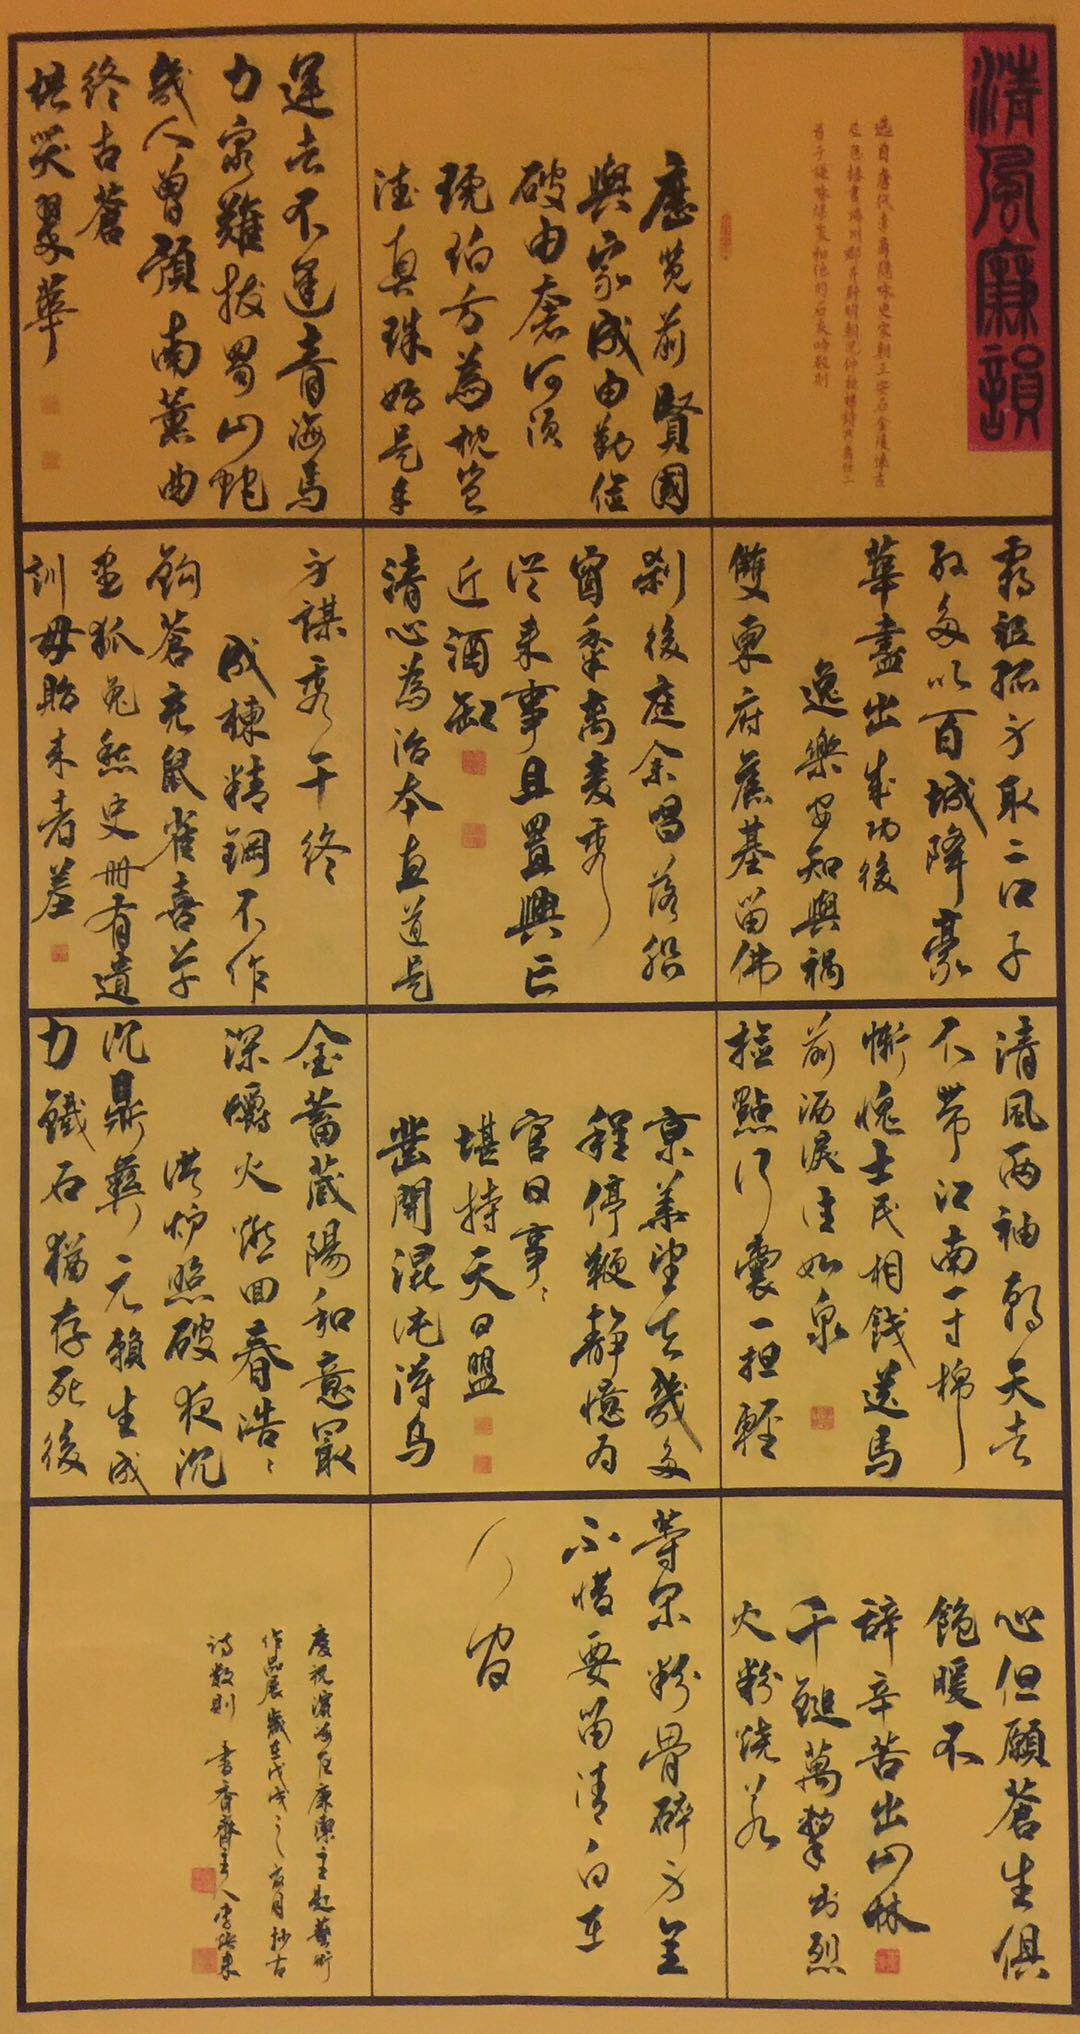 清風廉韻
選自唐代李商隱咏史宋朝王安石金陵懷古
歷覽前賢國
與家成由勤儉
破由奢何須
琥珀方為枕豈
待真珠始是車
運去不逢青海馬
力窮難拔蜀山蛇
幾人曾預南薰曲
終古蒼
梧哭翠華
霸祖孤身取二江子
孫多以百城降豪
華盡出成功後
逸樂安知與禍
雙東府舊基留佛
刹後庭余唱落船
窗黍離麥秀
從來事且置興亡
近酒缸
清心為治本直道是
身謀秀干終
成棟精鋼不作
鈎蒼充鼠雀喜草
盡狐兔愁史册有遺
訓毋貽來者羞
清風兩袖朝天去
不帶江南一寸棉
慚愧士民相餞送馬
前洒淚注如泉
檢點行囊一担輕
京華望去幾多
程停鞭靜憶為
官日事々
堪持天日盟
鑿開混沌得烏
金蓄藏陽和意最
深爝火燃回春浩々
洪炉照破夜沉
沉鼎彝元賴生成
力鐵石猶存死後
心但願蒼生俱
飽暖不
辭辛苦出山林
千鎚萬擊出烈
火粉燒若
等閑粉骨碎身全
不惜要留清白在
人間
慶祝濱海區廉潔主題藝術
作品展歲在戊戌之六月抄古
詩數則 書香齋主人李